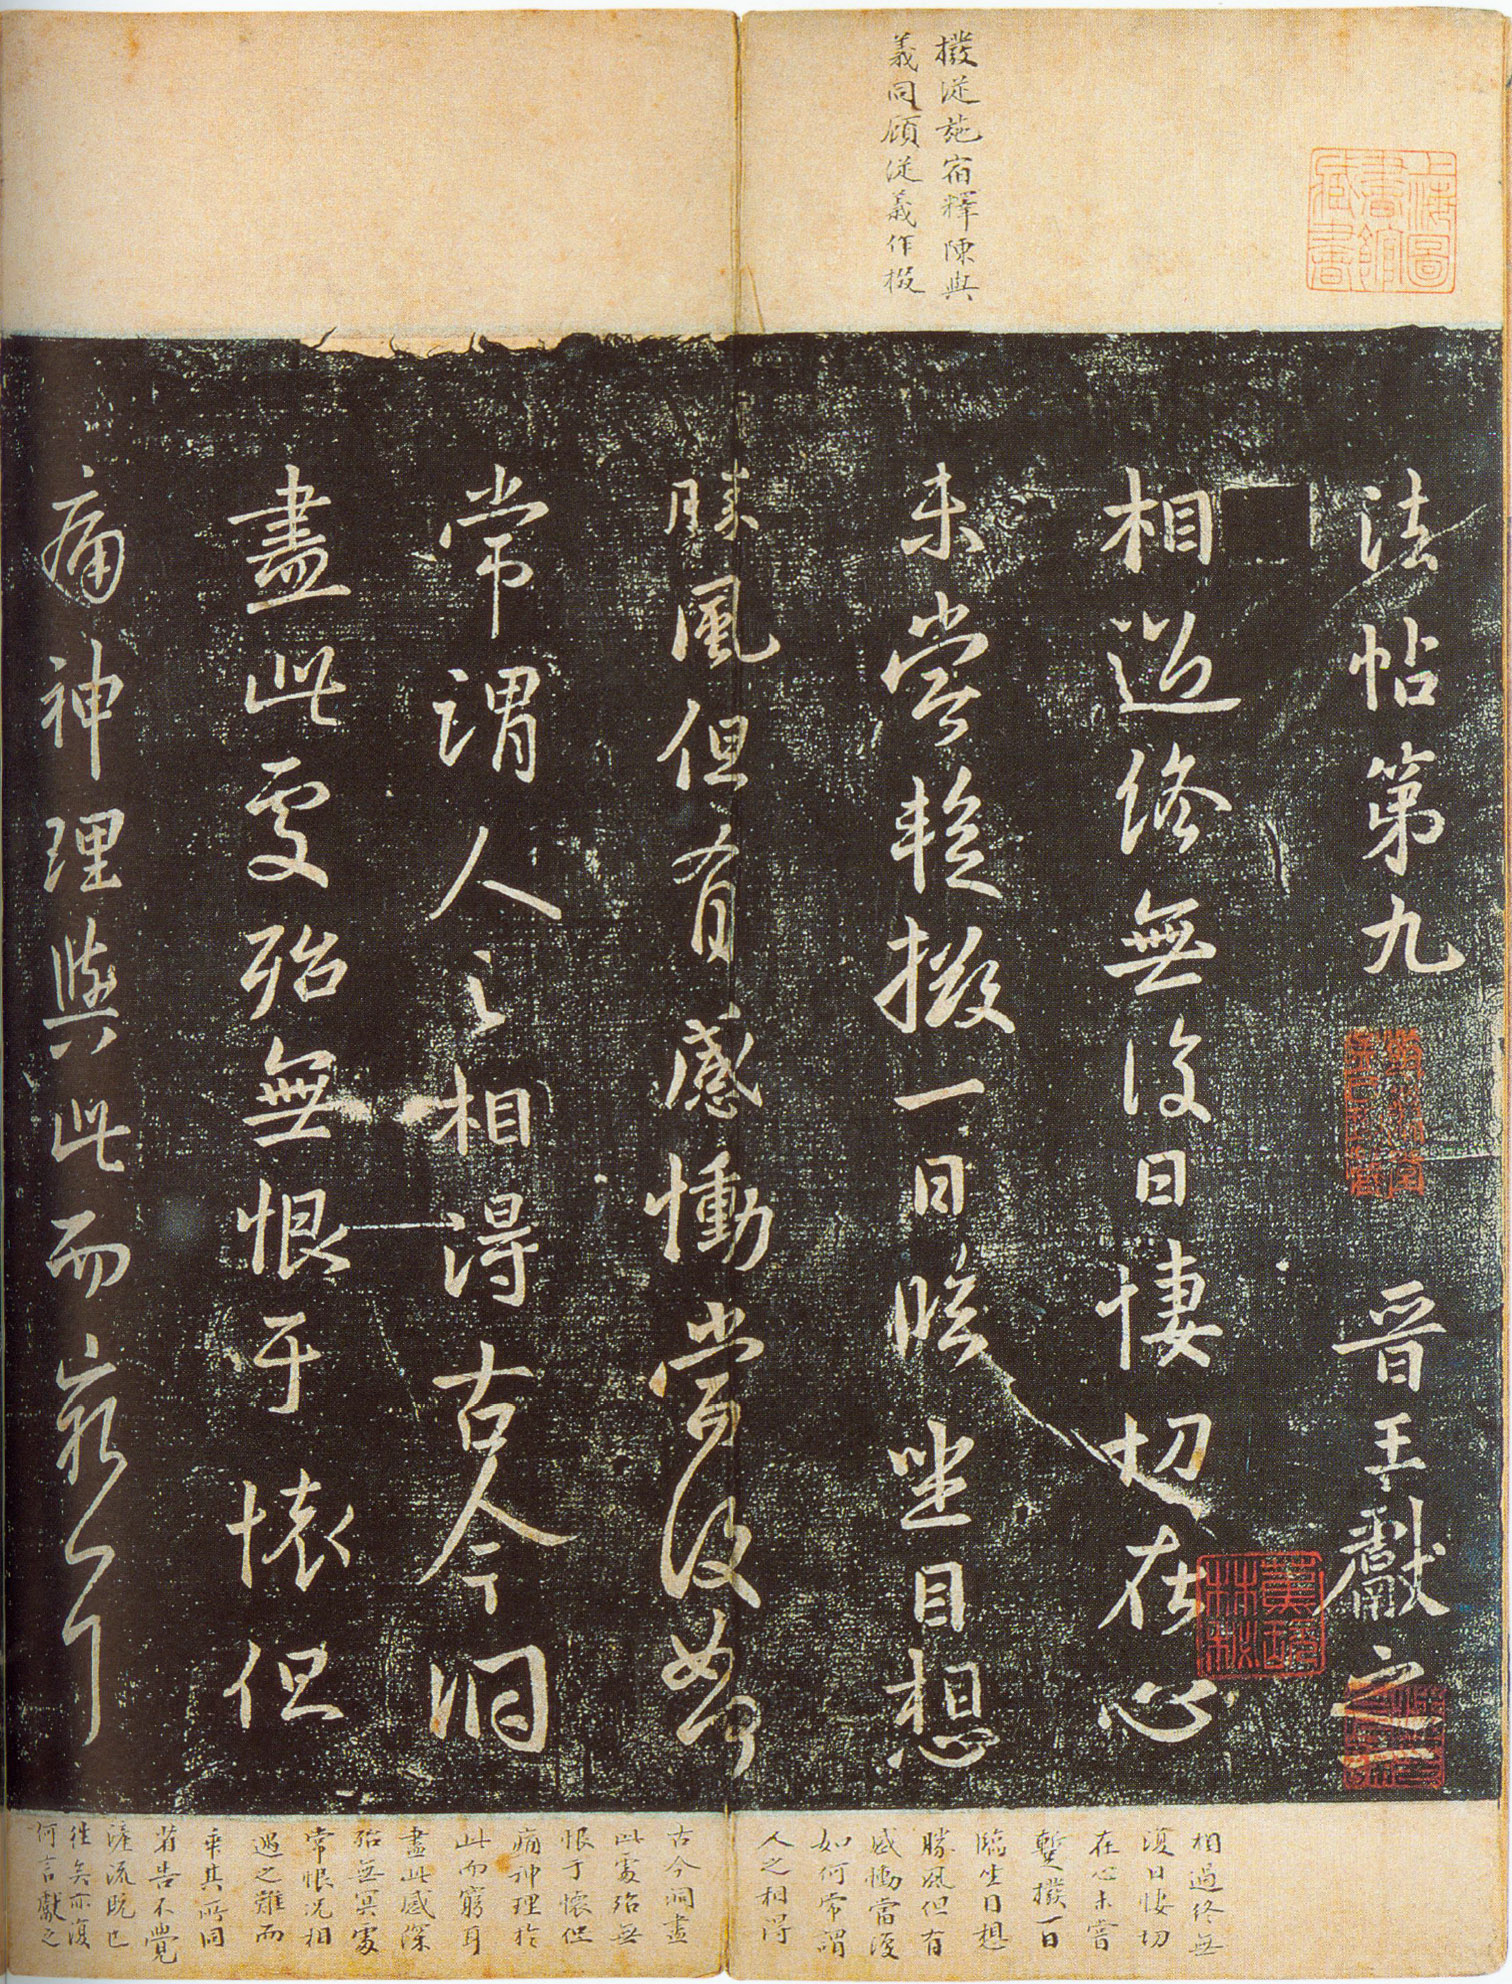 撥從施宿釋陳與
義同顧從義作掇
上海圖
書館
藏書
法帖第九 晉王獻之
相過終無復日悽切在心
未嘗暫掇一日臨坐目想
勝風但有感慟當復如何
常謂人之相得古今洞
盡此處殆無恨于懷但
痛神理與此而窮耳
相過終無
復日悽切
在心未嘗
暫撥一日
臨坐目想
勝風但有
感慟當復
如何常謂
人之相得
古今洞盡
此處殆無
恨于懷但
痛神理於
此而窮耳
盡此感深
殆無冥處
常恨況相
遇之難而
乖其所同
省告不覺
淚流既已
往矣亦復
何言獻之